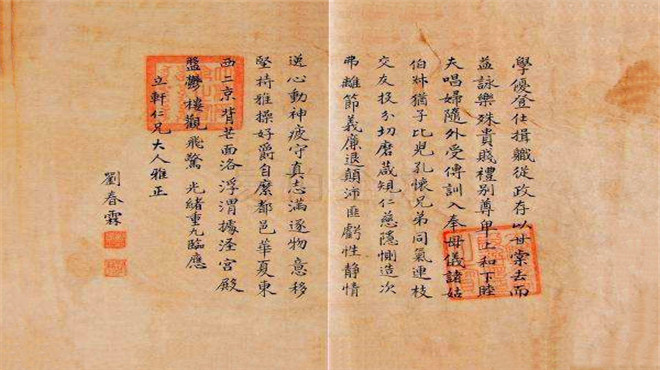 學優登仕攝職從政存以甘棠去而
益詠樂殊貴賤禮別尊卑上和下睦
夫唱婦隨外受傅訓入奉母儀諸姑
伯叔猶子比兒孔懷兄弟同氣連枝
交友投分切磨箴規仁慈隱惻造次
弗離節義廉退顛沛匪虧性靜情
逸心動神疲守真志滿逐物意移
堅持雅操好爵自縻都邑華夏東
西二京背芒面洛浮渭據涇宮殿
盤鬱樓觀飛驚 光緒重九臨應
立軒仁兄大人雅正
劉春霖